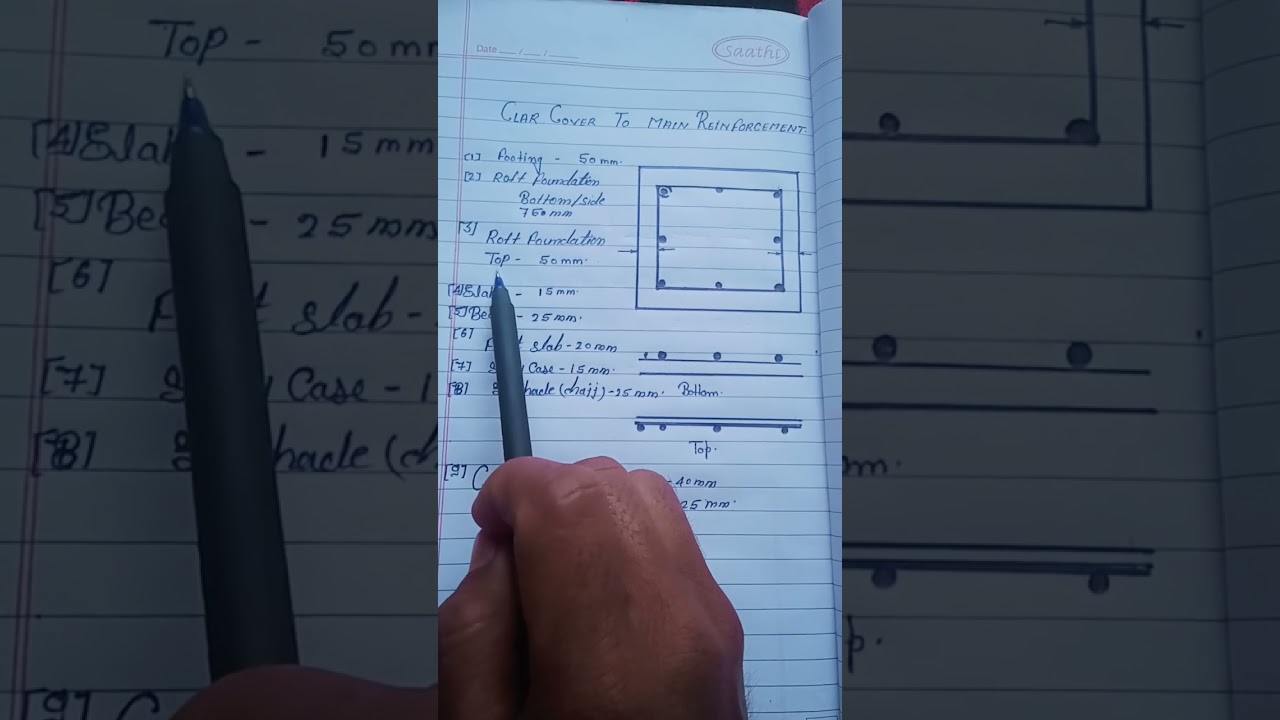 Date
Saathi
CLAR COVER TO MAIN REINFORCEMENT
[1] Footing - 50 mm.
[2] Raft Foundation
Bottom/side
750 mm
[3] Raft Foundation
Top - 50 mm.
[4] Slab - 15 mm.
[5] Be - 25 mm.
[6]
F t slab - 20 mm
[7] Case - 15 mm.
[8] hade (chajj) - 25 mm.
Bottom.
Top.
[9] C - 40 mm
25 mm.